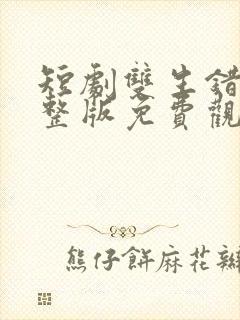 短劇雙生錯
整版免費觀
熊仔餅麻花辮